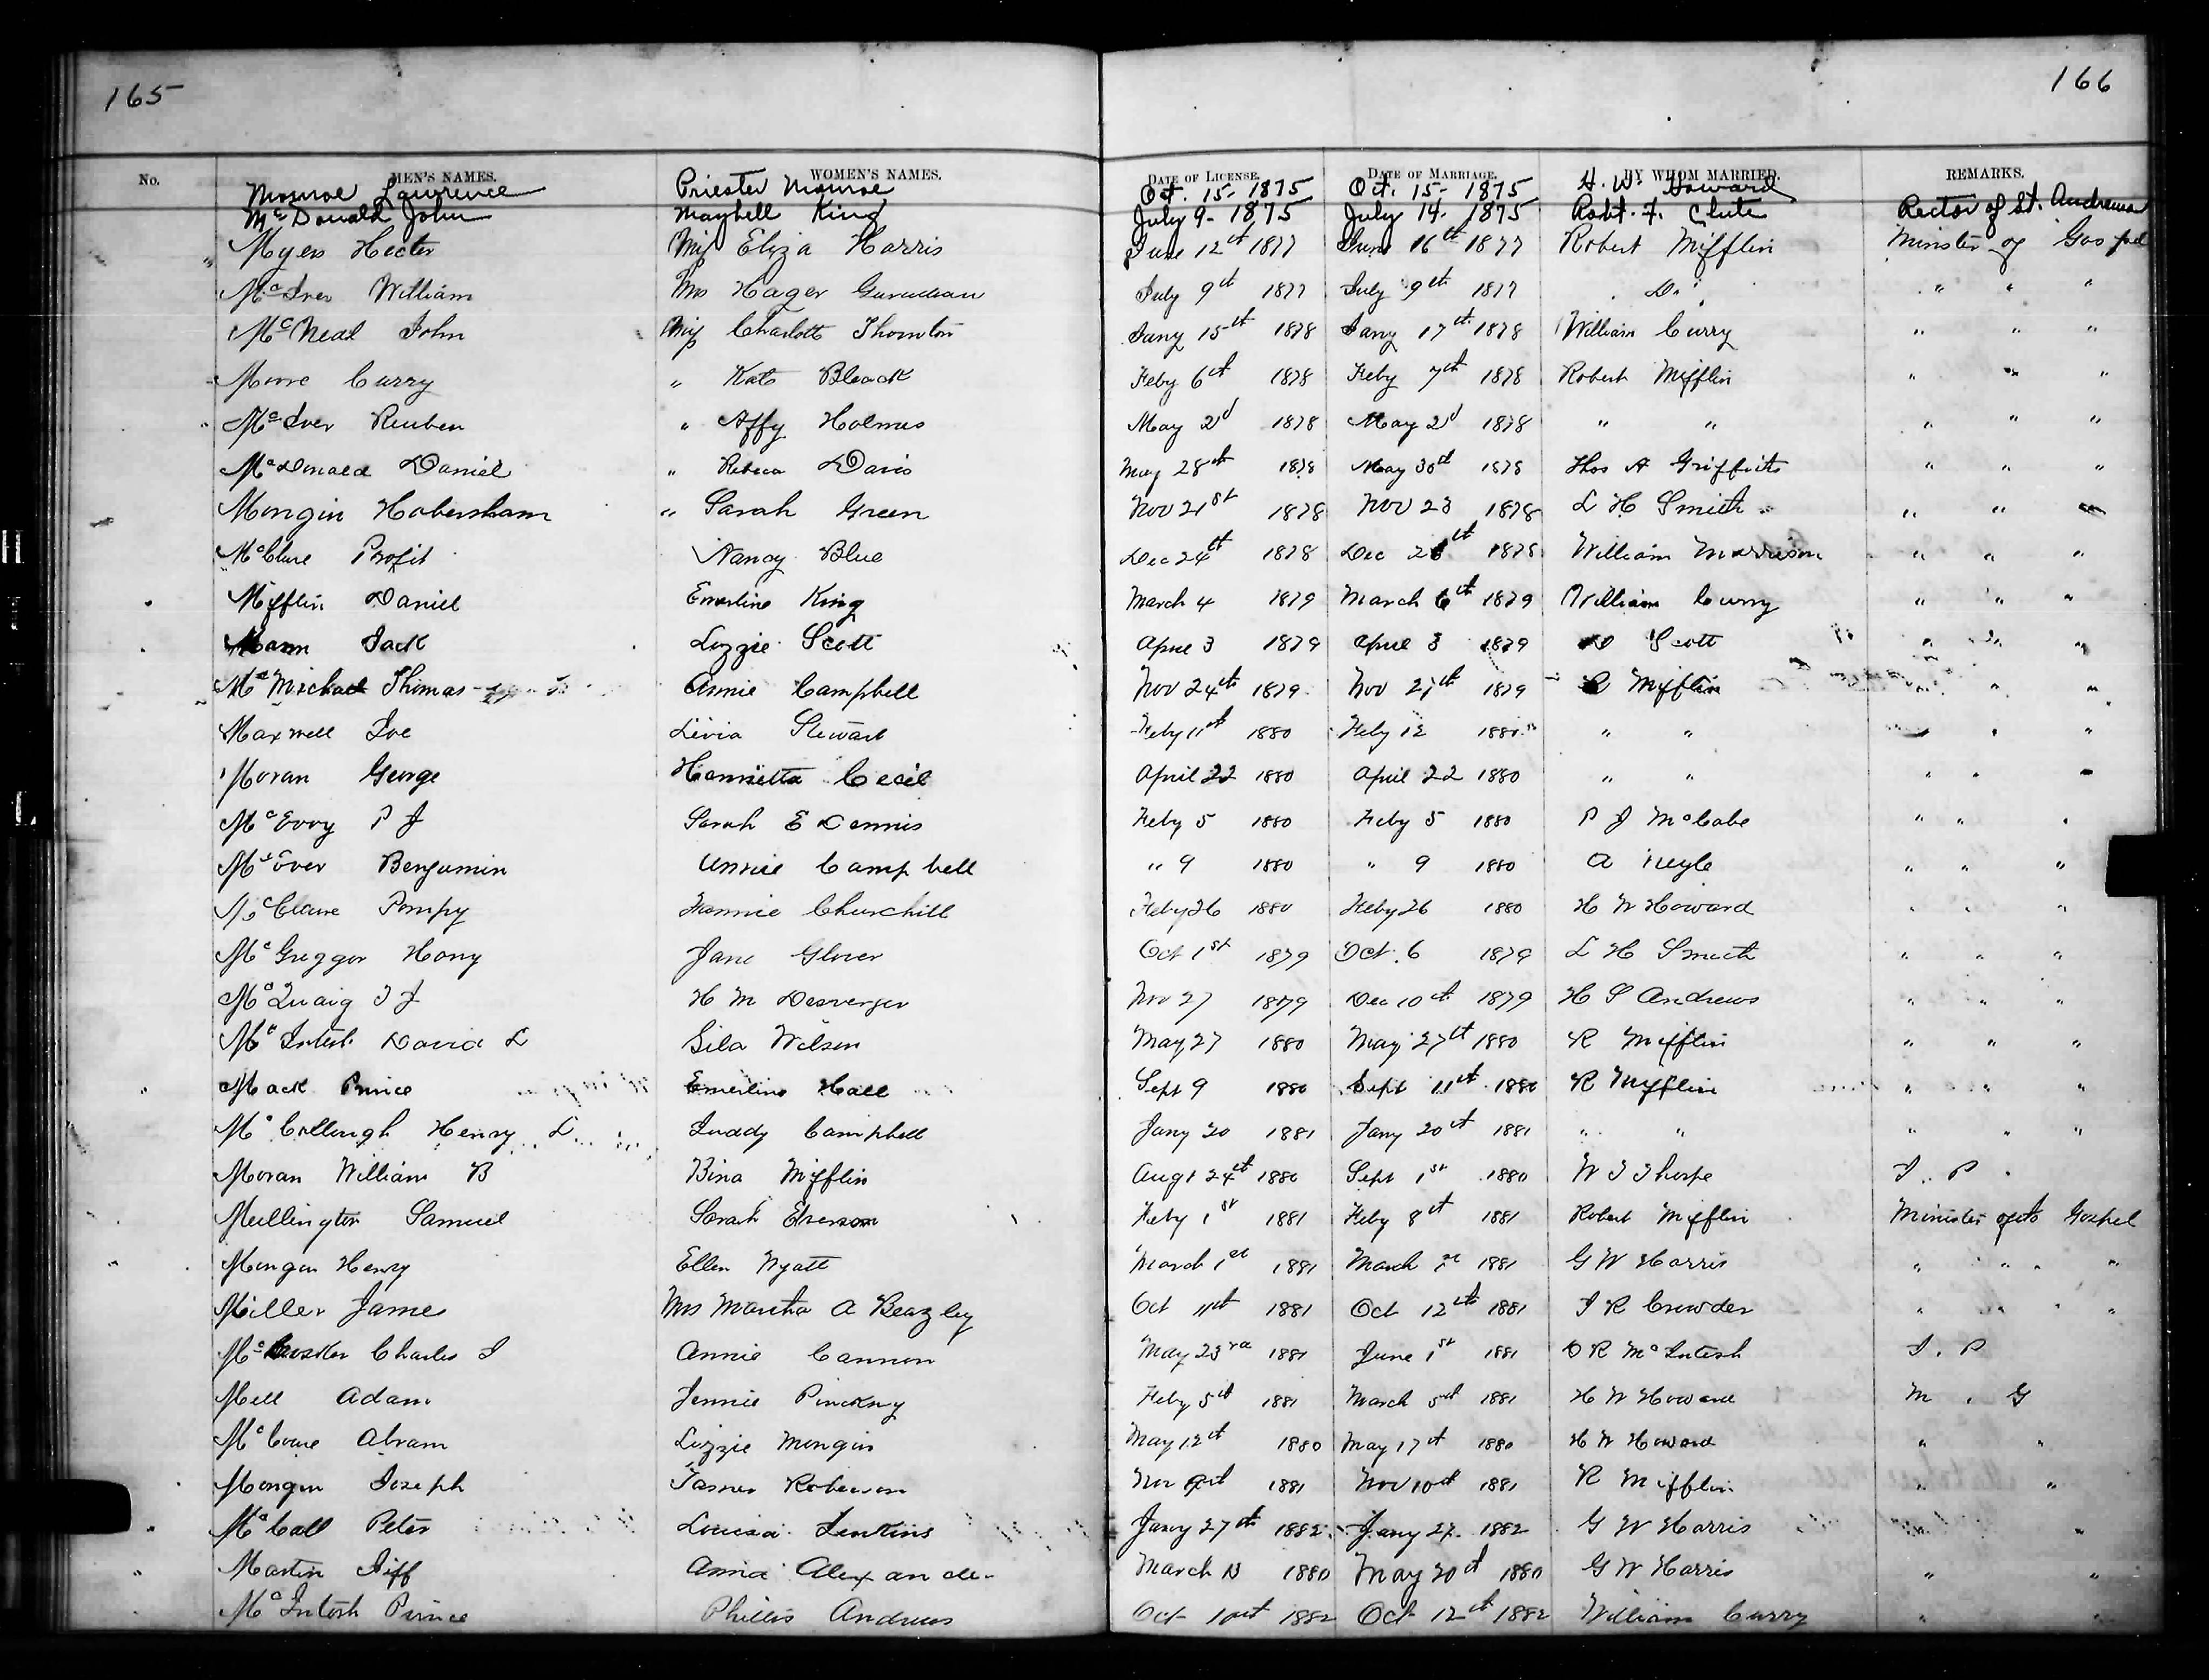 165 166
No. MEN'S NAMES. WOMEN'S NAMES. DATE OF LICENSE. DATE OF MARRIAGE. BY WHOM MARRIED. REMARKS.
Monroe Lawrence Priester Monroe Oct. 15- 1875 Oct. 15- 1875 H. W. Howard
McDonald John Maybell King July 9- 1875 July 14- 1875 Robt. F. Clute Rector of St. Andrews
Myers Hector Miss Eliza Harris June 12th 1877 June 16th 1877 Robert Mifflin Minister of Gospel
McIver William Mrs Hager July 9th 1877 July 9th 1877 Do " " "
McNeal John Miss Charlotte Thornton Jany 15th 1878 Jany 17th 1878 William Curry " " "
Moore Curry " Kate Black Feby 6th 1878 Feby 7th 1878 Robert Mifflin " " "
McIver Reuben " Affy Holmes May 2d 1878 May 2d 1878 " " " " "
McDonald Daniel " Rebeca Davis May 28th 1878 May 30th 1878 Thos A Griffiths " " "
Mongin Habersham " Sarah Green Nov 21st 1878 Nov 23 1878 L H Smith " " "
McClure Profit Nancy Blue Dec 24th 1878 Dec 1878 William Morrison " " "
Mifflin Daniel Emerline King March 4 1879 March 6th 1879 William Curry " " "
Mann Jack Lizzie Scott April 3 1879 April 3 1879 Scott " " "
McMichael Thomas Annie Campbell Nov 24th 1879 Nov 27th 1879 R Mifflin " " "
Maxwell Joe Livia Stewart Feby 11th 1880 Feby 12 1880 " " " "
Moran George Henrietta Cecil April 22 1880 April 22 1880 " " " " "
McEvoy P J Sarah E Dennis Feby 5 1880 Feby 5 1880 P J McCabe " " "
Benjamin Annie Campbell " 9 1880 " 9 1880 A Neyle " " "
Pompy Fannie Churchill Feby 26 1880 Feby 26 1880 H W Howard " " "
McGreggor Harry Jane Glover Oct 1st 1879 Oct. 6 1879 L H Smith " " "
McQuaig J J H M Desverger Nov 27 1879 Dec 10th 1879 H S Andrews " " "
McIntosh David L Wilson May 27 1880 May 27th 1880 R Mifflin " " "
Mack Prince Emerline Hall Sept 9 1880 Sept 11th 1880 R Mifflin " " "
McCollough Henry L Campbell Jany 20 1881 Jany 20th 1881 " " " " "
Moran William B Bina Mifflin Augt 24th 1880 Sept 1st 1880 W J Thorpe J. P.
Mullington Samuel Sarah Feby 1st 1881 Feby 8th 1881 Robert Mifflin Minister of the Gospel
Mongin Henry Ellen Wyatt March 1st 1881 March 1st 1881 G W Harris " " "
Miller Jame Mrs Martha A Beazley Oct 11th 1881 Oct 12th 1881 J R Crowder " " "
Charles J Annie Cannon May 23rd 1881 June 1st 1881 O R McIntosh J. P
Mell Adam Jennie Pinckny Feby 5th 1881 March 5th 1881 H W Howard M . G
Abram Lizzie Mongin May 12th 1880 May 17th 1880 H W Howard " "
Mongin Joseph Nov 1881 Nov 10th 1881 R Mifflin " "
McCall Peter Louisa Jenkins Jany 27th 1882 Jany 27 1882 G W Harris "
Martin Jiff Anna Alexander March 13 1880 May 20th 1880 G W Harris " "
McIntosh Prince Phillis Andrews Oct 10th 1882 Oct 12th 1882 William Curry " "